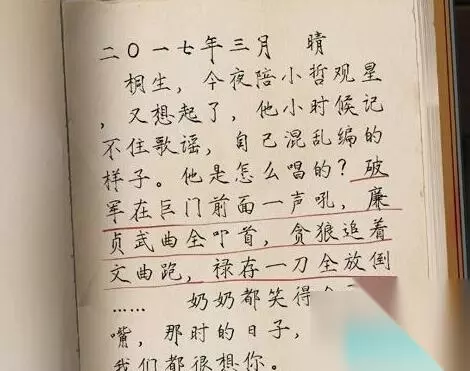 二〇一七年三月 晴
桐生，今夜陪小哲观星
，又想起了，他小时候记
不住歌谣，自己混乱编的
样子。他是怎么唱的？破
军在巨门前面一声吼，廉
贞武曲全叩首，贪狼追着
文曲跑，禄存一刀全放倒
…… 奶奶都笑得
嘴，那时的日子，
我们都很想你。